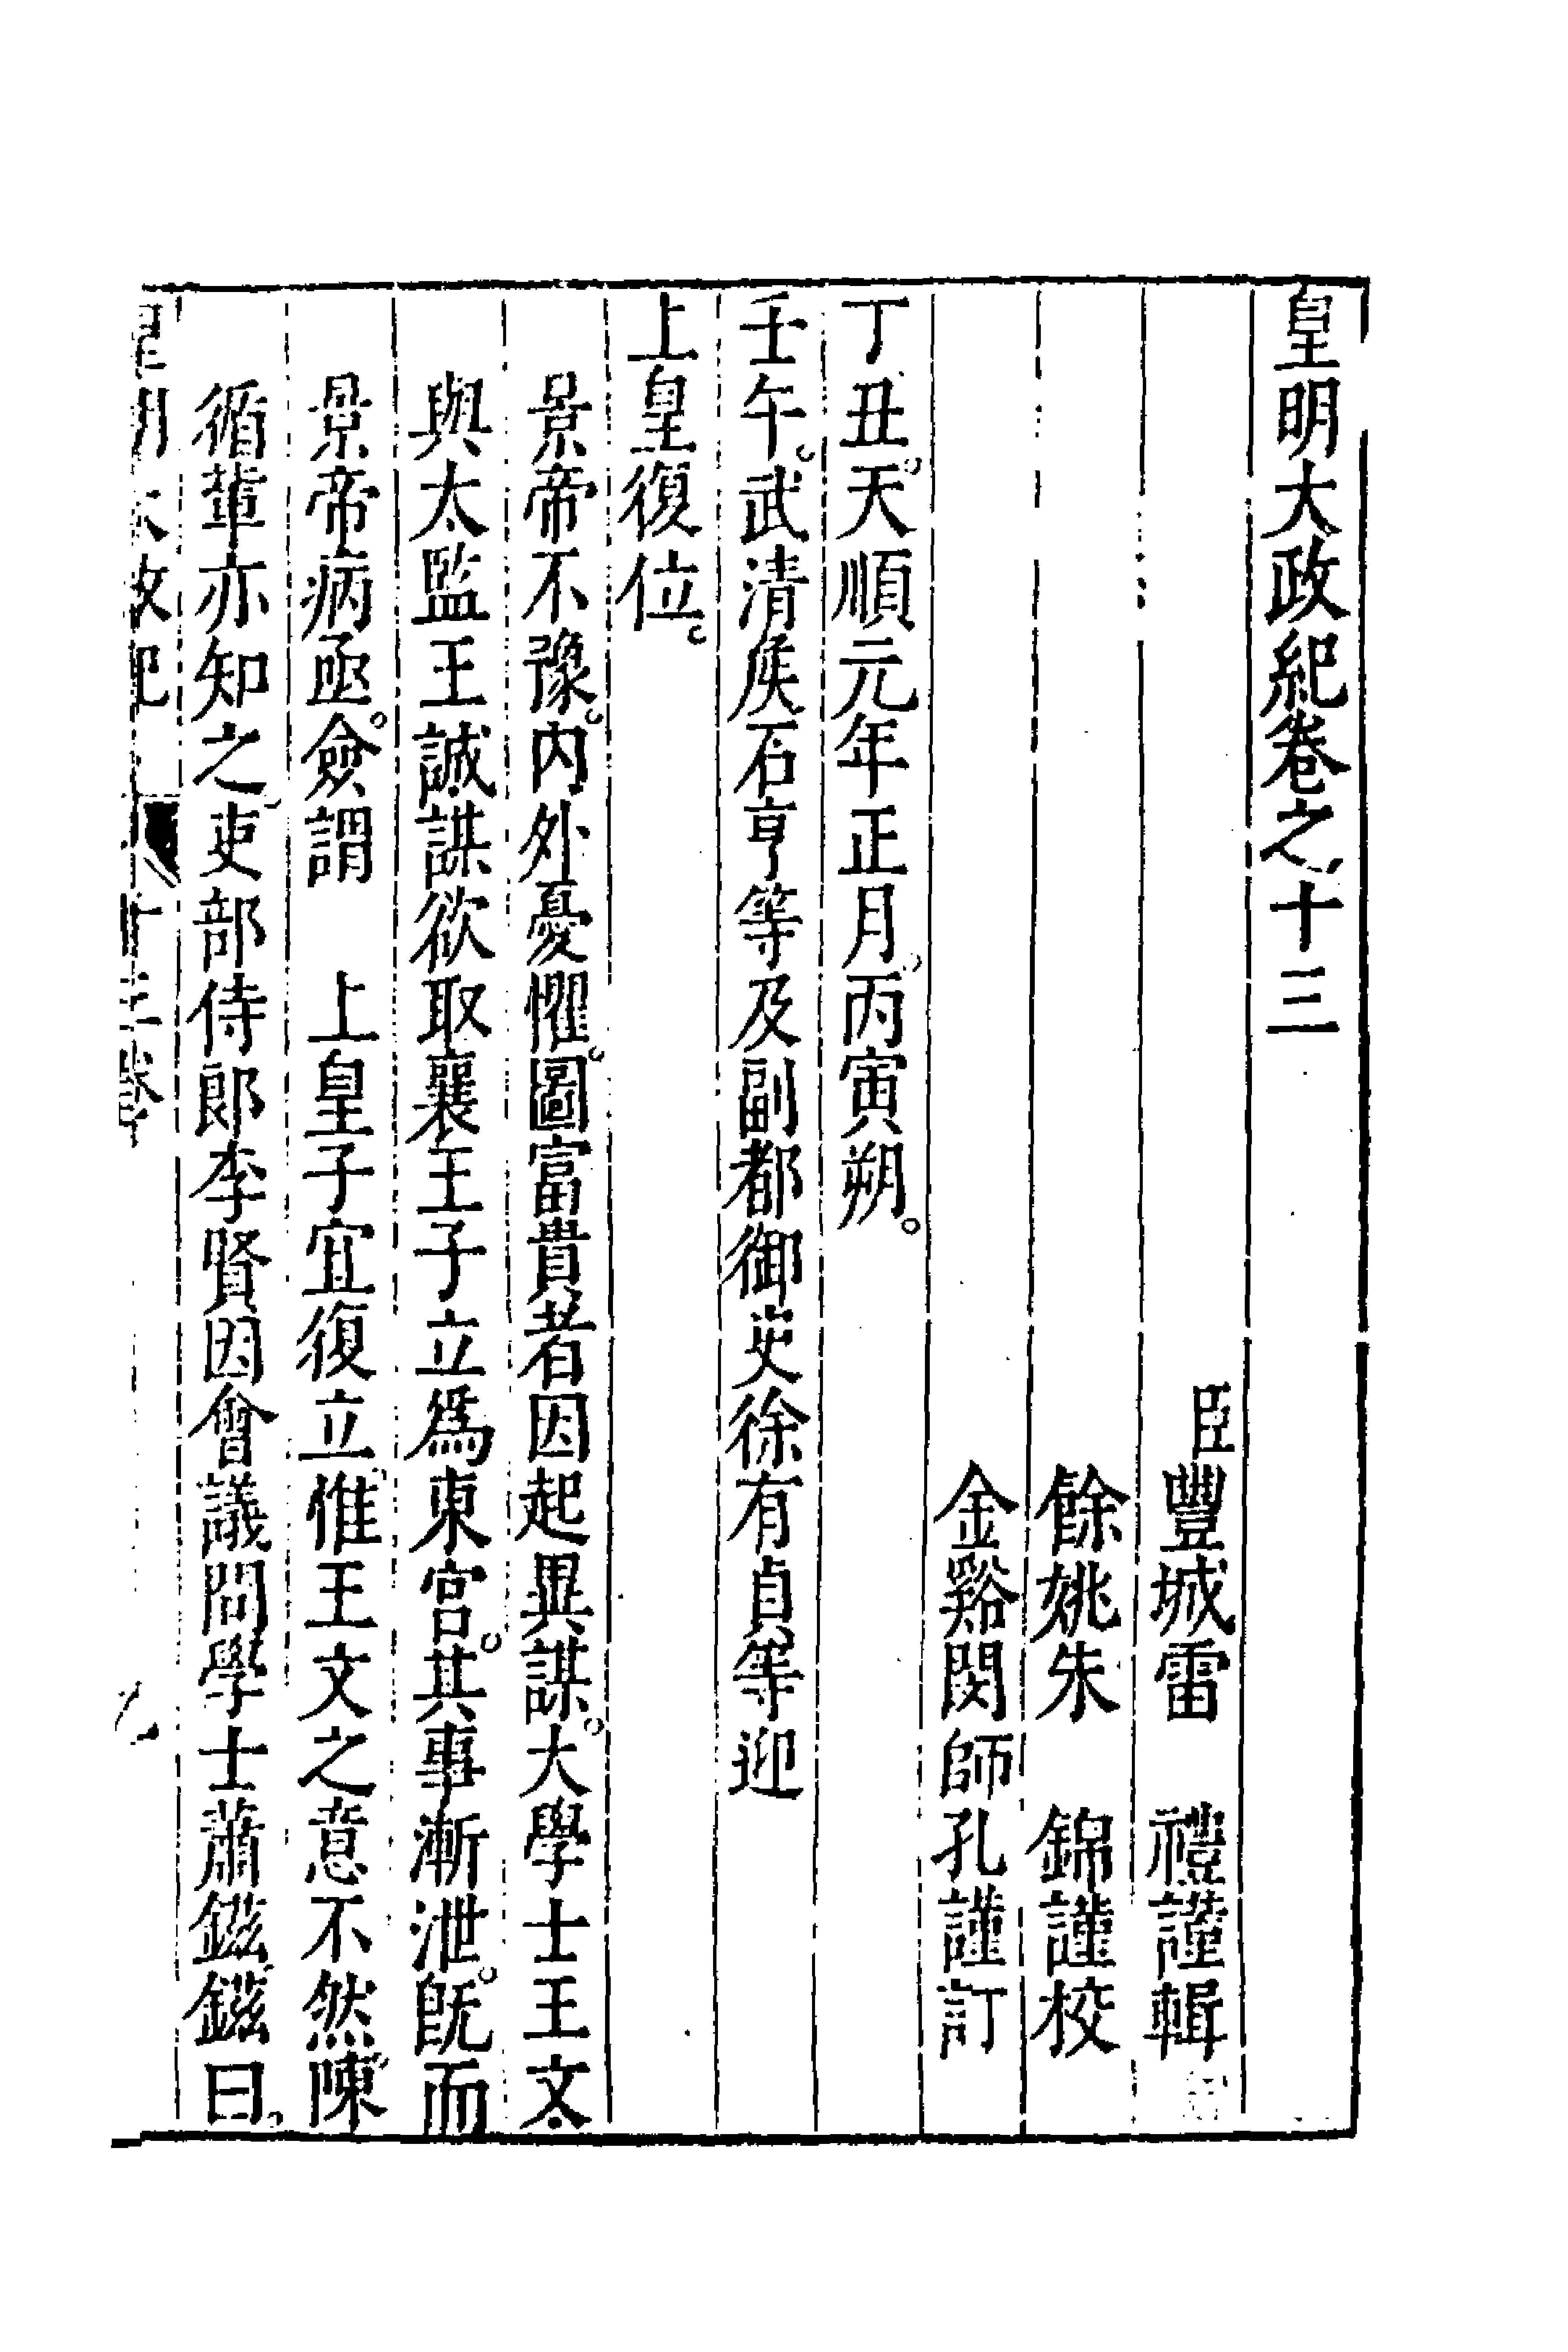 皇明大政紀卷之十三
臣豐城雷　禮謹輯
餘姚朱　錦謹校
金谿閔師孔謹訂
丁丑。天順元年正月。丙寅朔。
壬午。武清侯石亨等及副都御史徐有貞等迎
上皇復位。
景帝不豫。內外憂懼。圖富貴者因起異謀。大學士王文
與太監王誠謀欲取襄王子立爲東宮。其事漸泄。旣而
景帝病亟。僉謂　上皇子宜復立。惟王文之意不然。陳
循輩亦知之。吏部侍郎李賢因會議問學士蕭鎡。鎡曰。
皇明大政紀　十三卷